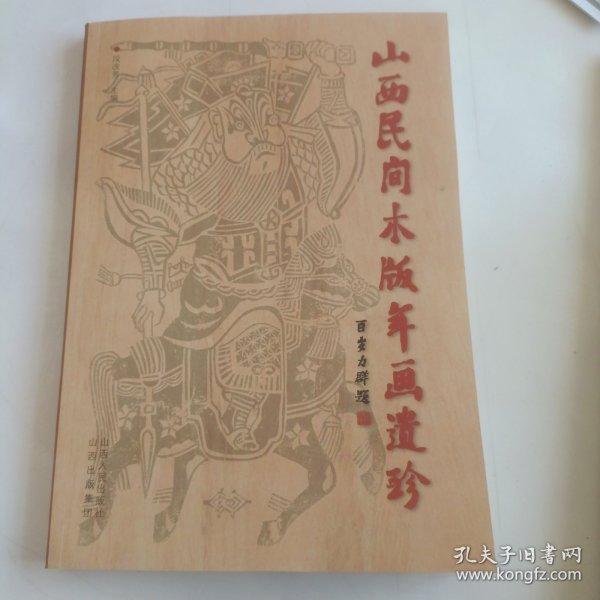 山西民间木版年画遗珍
百岁力群题
段改芳 主编
山西出版集团
山西人民出版社
孔夫子旧书网
www.kongfz.com